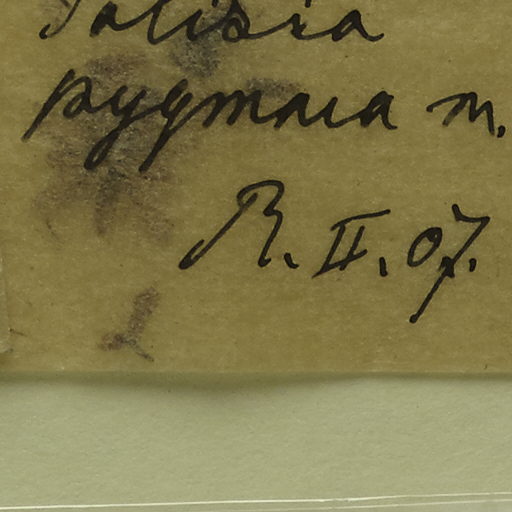 Talisia
pygmaea m.
R. II. 07.